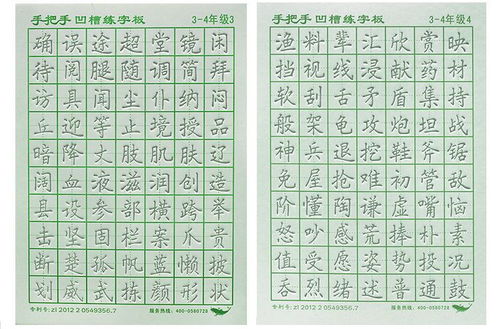 手把手 凹槽练字板
3-4年级3
确误途超堂镜闲
待阅腿随调简拜
访具闻尘仆纳闷
丘迎等止境授品
暗降丈肢肌肤辽
阔血液滋润创造
县设参部横跨举
击坚固栏案爪贵
断楚孤帆蓝懒披
划威武拣颜形状
专利号:zl 2012 2 0549356.7
服务热线:400-0580728
手把手 凹槽练字板
3-4年级4
渔料辈汇欣赏映
挡视线浸献药材
软刮舌矛盾集持
般架龟攻炮坦战
神兵退挖鞋斧锯
免屋抢难初管敌
阶懂陶谦虚嘴恼
怒吵感荒捧朴素
值受愿姿势投况
吞烈绪述普通鼓
专利号:zl 2012 2 0549356.7
服务热线:400-0580728